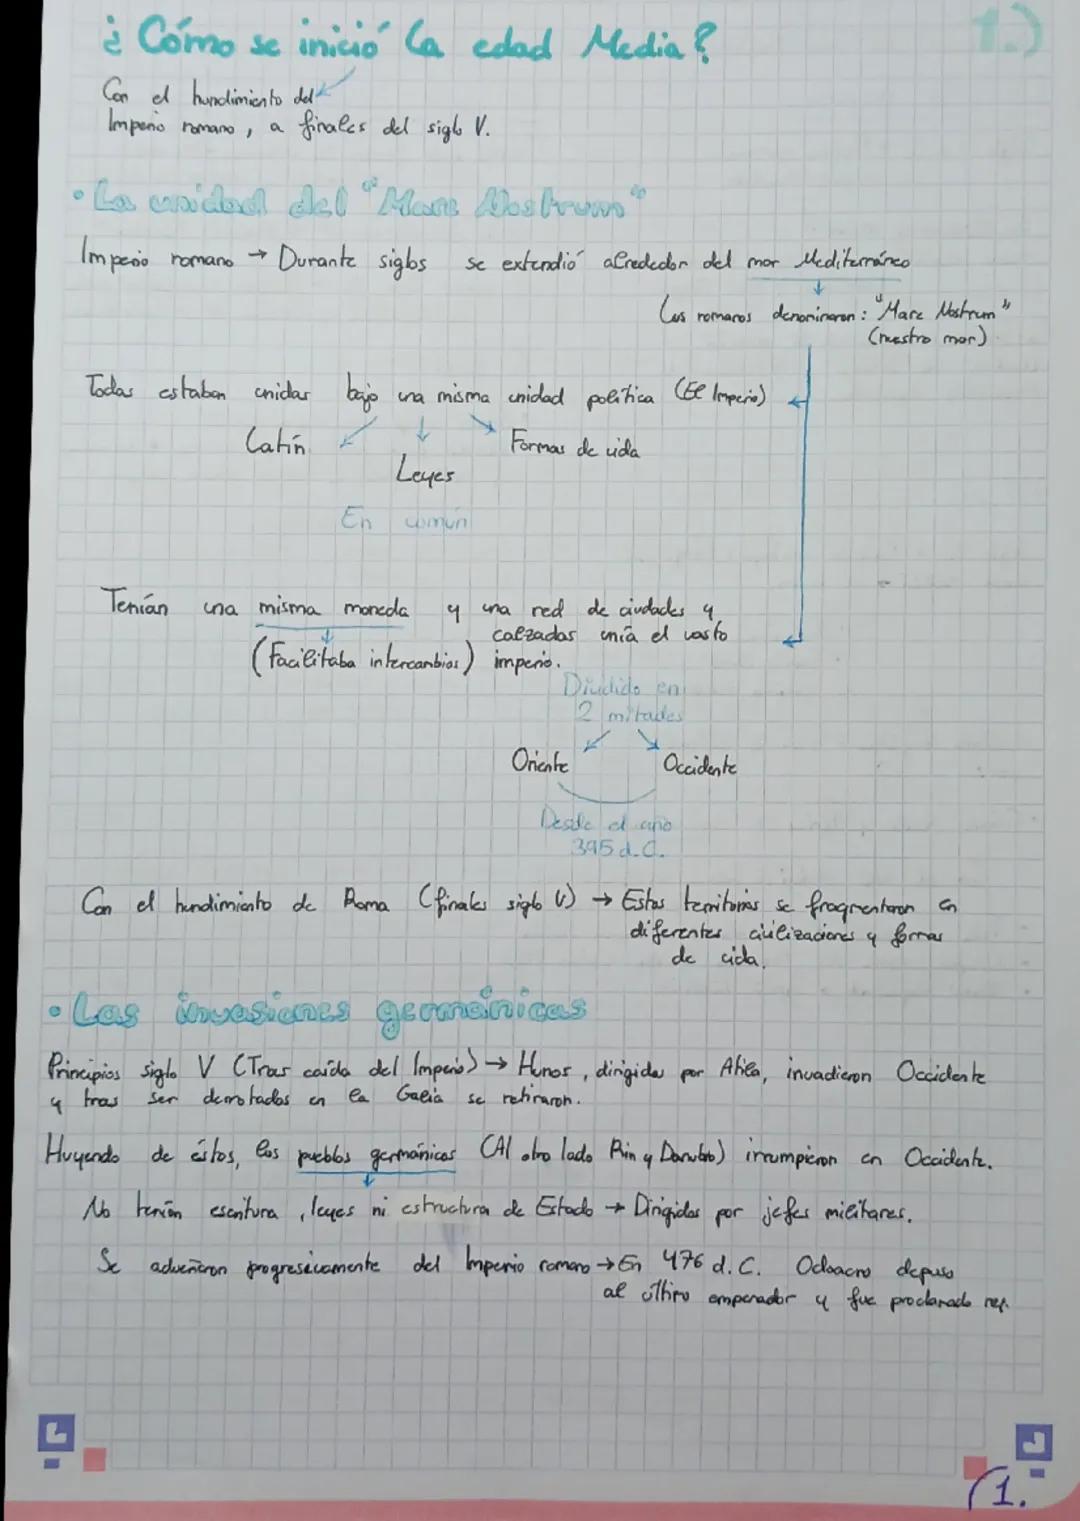 1.)
¿Cómo se inició la edad Media?
Con el hundimiento del
Imperio romano, a finales del siglo V.
• La unidad del "Mare Nostrum"
Imperio romano → Durante siglos se extendió alrededor del mar Mediterráneo
Los romanos denominaron: "Mare Nostrum"
(nuestro mar)
Todas estaban unidas bajo una misma unidad política (El Imperio)
Latín
Formas de vida
Leyes
En común
Tenían una misma moneda y una red de ciudades y
calzadas unía el vasto
(Facilitaba intercambios) imperio.
Dividido en
2 mitades
Oriente Occidente
Desde el año
395 d.C.
Con el hundimiento de Roma (finales siglo V) → Estos territorios se fragmentaron en
diferentes civilizaciones y formas
de vida.
• Las invasiones germánicas
Principios siglo V (Tras caída del Imperio) → Hunos, dirigidos por Atila, invadieron Occidente
y tras ser derrotados en la Galia se retiraron.
Huyendo de éstos, los pueblos germánicos (Al otro lado Rin y Danubio) irrumpieron en Occidente.
No tenían escritura, leyes ni estructura de Estado → Dirigidos por jefes militares.
Se adueñaron progresivamente del Imperio romano → En 476 d.C. Odoacro depuso
al último emperador y fue proclamado rey.
1.